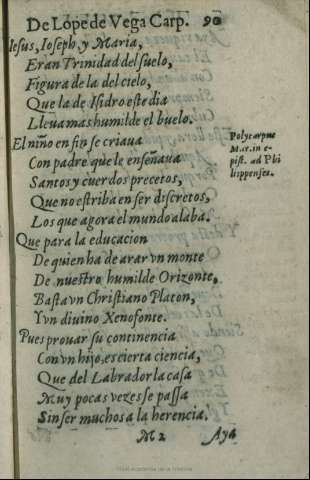 De Lope de Vega Carp. 90
Iesus, Ioseph, y Maria,
Eran Trinidad del suelo,
Figura de la del cielo,
Que la de Isidro este dia
Lleua mas humilde el buelo.
El nino en fin se criaua
Con padre que le enseñaua
Santos y cuerdos precetos,
Que no estriba en ser discretos,
Los que agora el mundo alaba.
Polycarpus
Mar. in e-
pist. ad Phi
lippenses.
Que para la educacion
De quien ha de arar vn monte
De nuestro humilde Orizonte,
Basta vn Christiano Platon,
Y vn diuino Xenofonte.
Pues prouar su continencia
Con vn hijo, es cierta ciencia,
Que del Labrador la casa
Muy pocas vezes se passa
Sin ser muchos a la herencia.
M 2 Aya